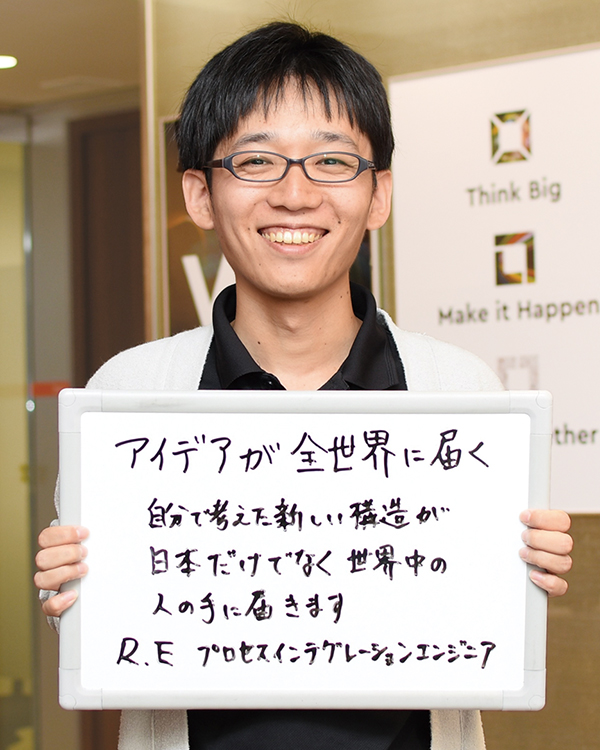 Think Big
Make it Happen
アイデアが全世界に届く
自分で考えた新しい構造が
日本だけでなく世界中の
人の手に届きます
R.E プロセスインテグレーションエンジニア